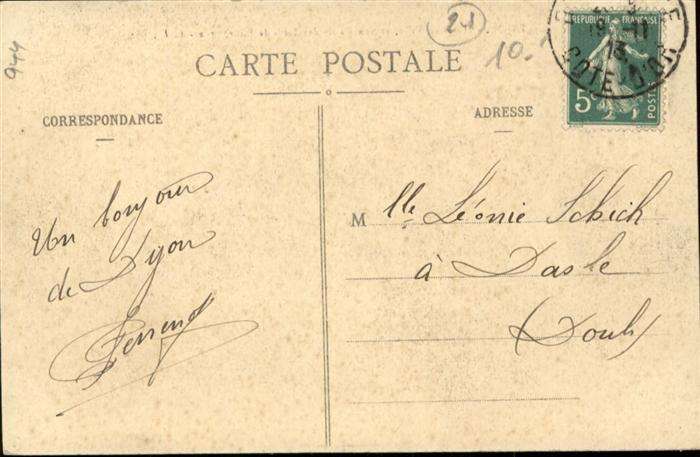 944
21
10.
CARTE POSTALE
REPUBLIQUE FRANÇAISE
5c
POSTES
13
COTE D'OR
CORRESPONDANCE
ADRESSE
Un bonjour
de Dijon
Mlle Léonie Schich
à Dasle
(Doubs)